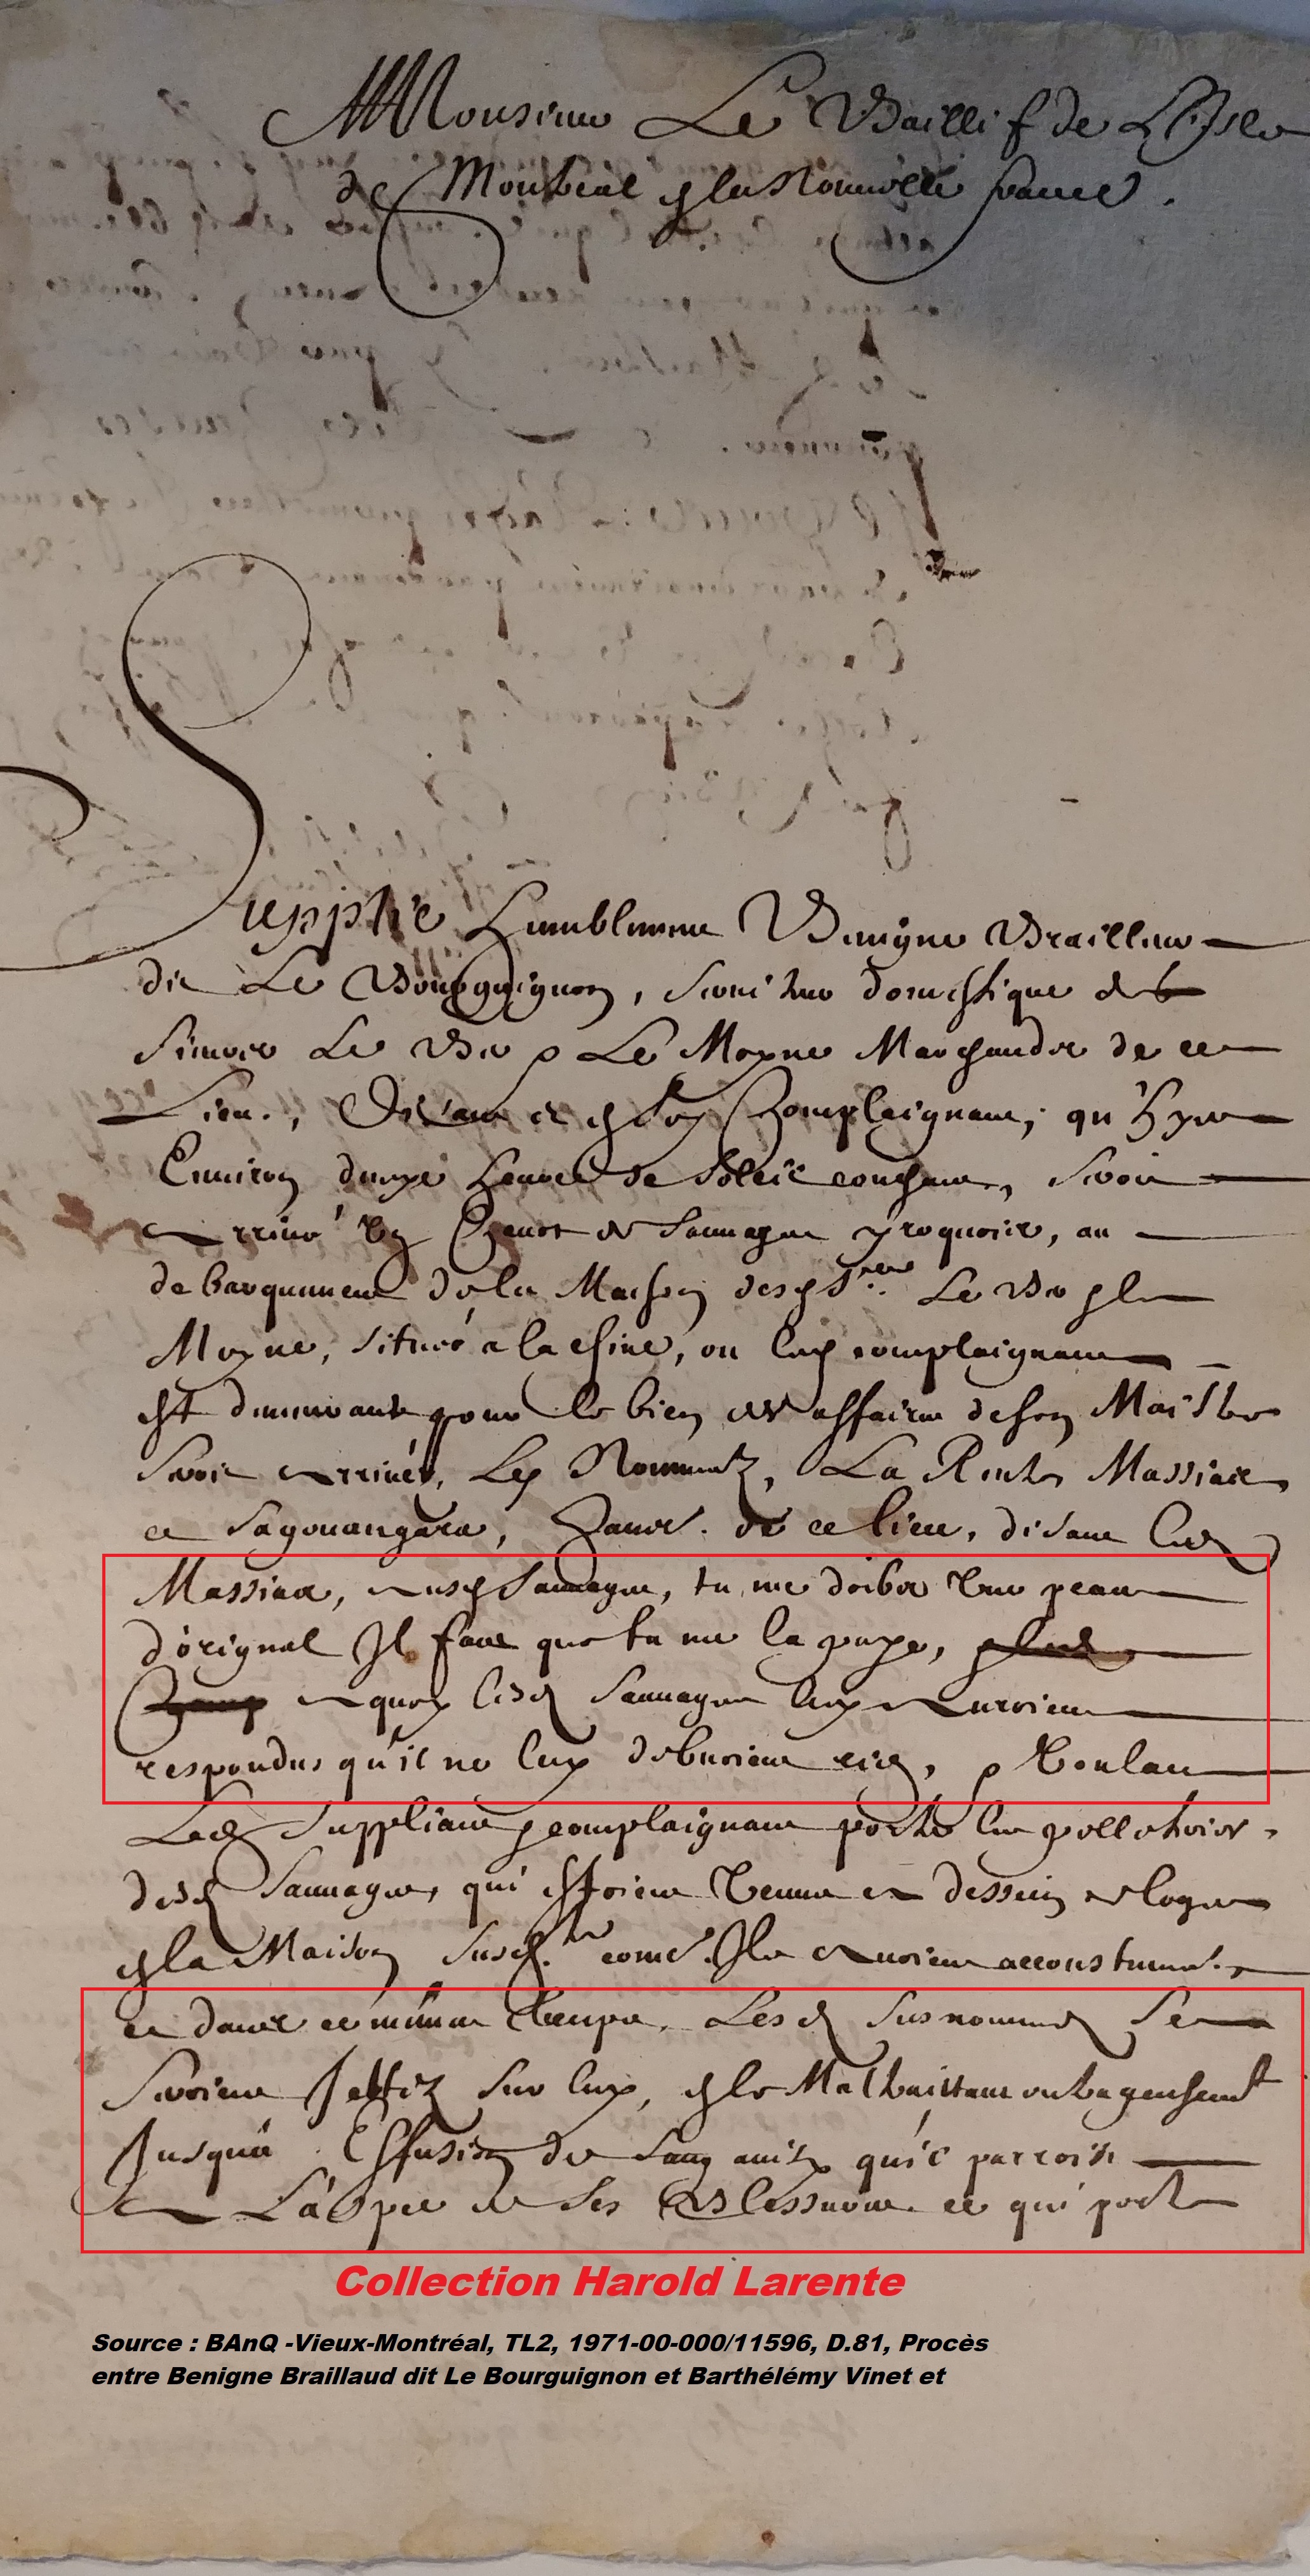 A Monsieur Le Baillif de L'Isle
de Montreal en la Nouuelle france.
Supplie humblement Benigne Braillaud
dit Le Bourguignon, seruiteur domestique des
sieurs Le Ber & Le Moyne Marchands de ce
Lieu, Disant et en soy Complaignant, qu'hyer
Enuiron deux heures de soleil couchant, seroit
arriué Un Canot de sauuages yroquois, au
debarquement de la Maison desd. Srs Le Ber & le
Moyne, situee a la chine, ou led complaignant
est demeurant pour le bien des affaires de son Maistre
seroit arriués, Les Nommez, La Rente Massiot
et , habit. de ce lieu, disant led
Massiot, ausd Sauuages, tu me doibs Une peau
d'orignal Il faut que tu me la paye,
a quoy lesd Sauuages luy auroient
respondus qu'il ne luy debuoient rien, & Voulant
Led Suppliant & complaignant porter les pelleteries
desd Sauuages, qui estoient Venus a dessein de loger
en la Maison susd. come Ils auoient accoustumé,
et dans ce mesme temps, Lesd susnommez se
seroient Jettez sur luy, en le Maltraittant outrageusemt
Jusqu'a Effusion de sang ainsy qu'il parroist
a L'aspec de ses Blessures ce qui porte
Collection Harold Larente
Source : BAnQ -Vieux-Montréal, TL2, 1971-00-000/11596, D.81, Procès
entre Benigne Braillaud dit Le Bourguignon et Barthélémy Vinet et